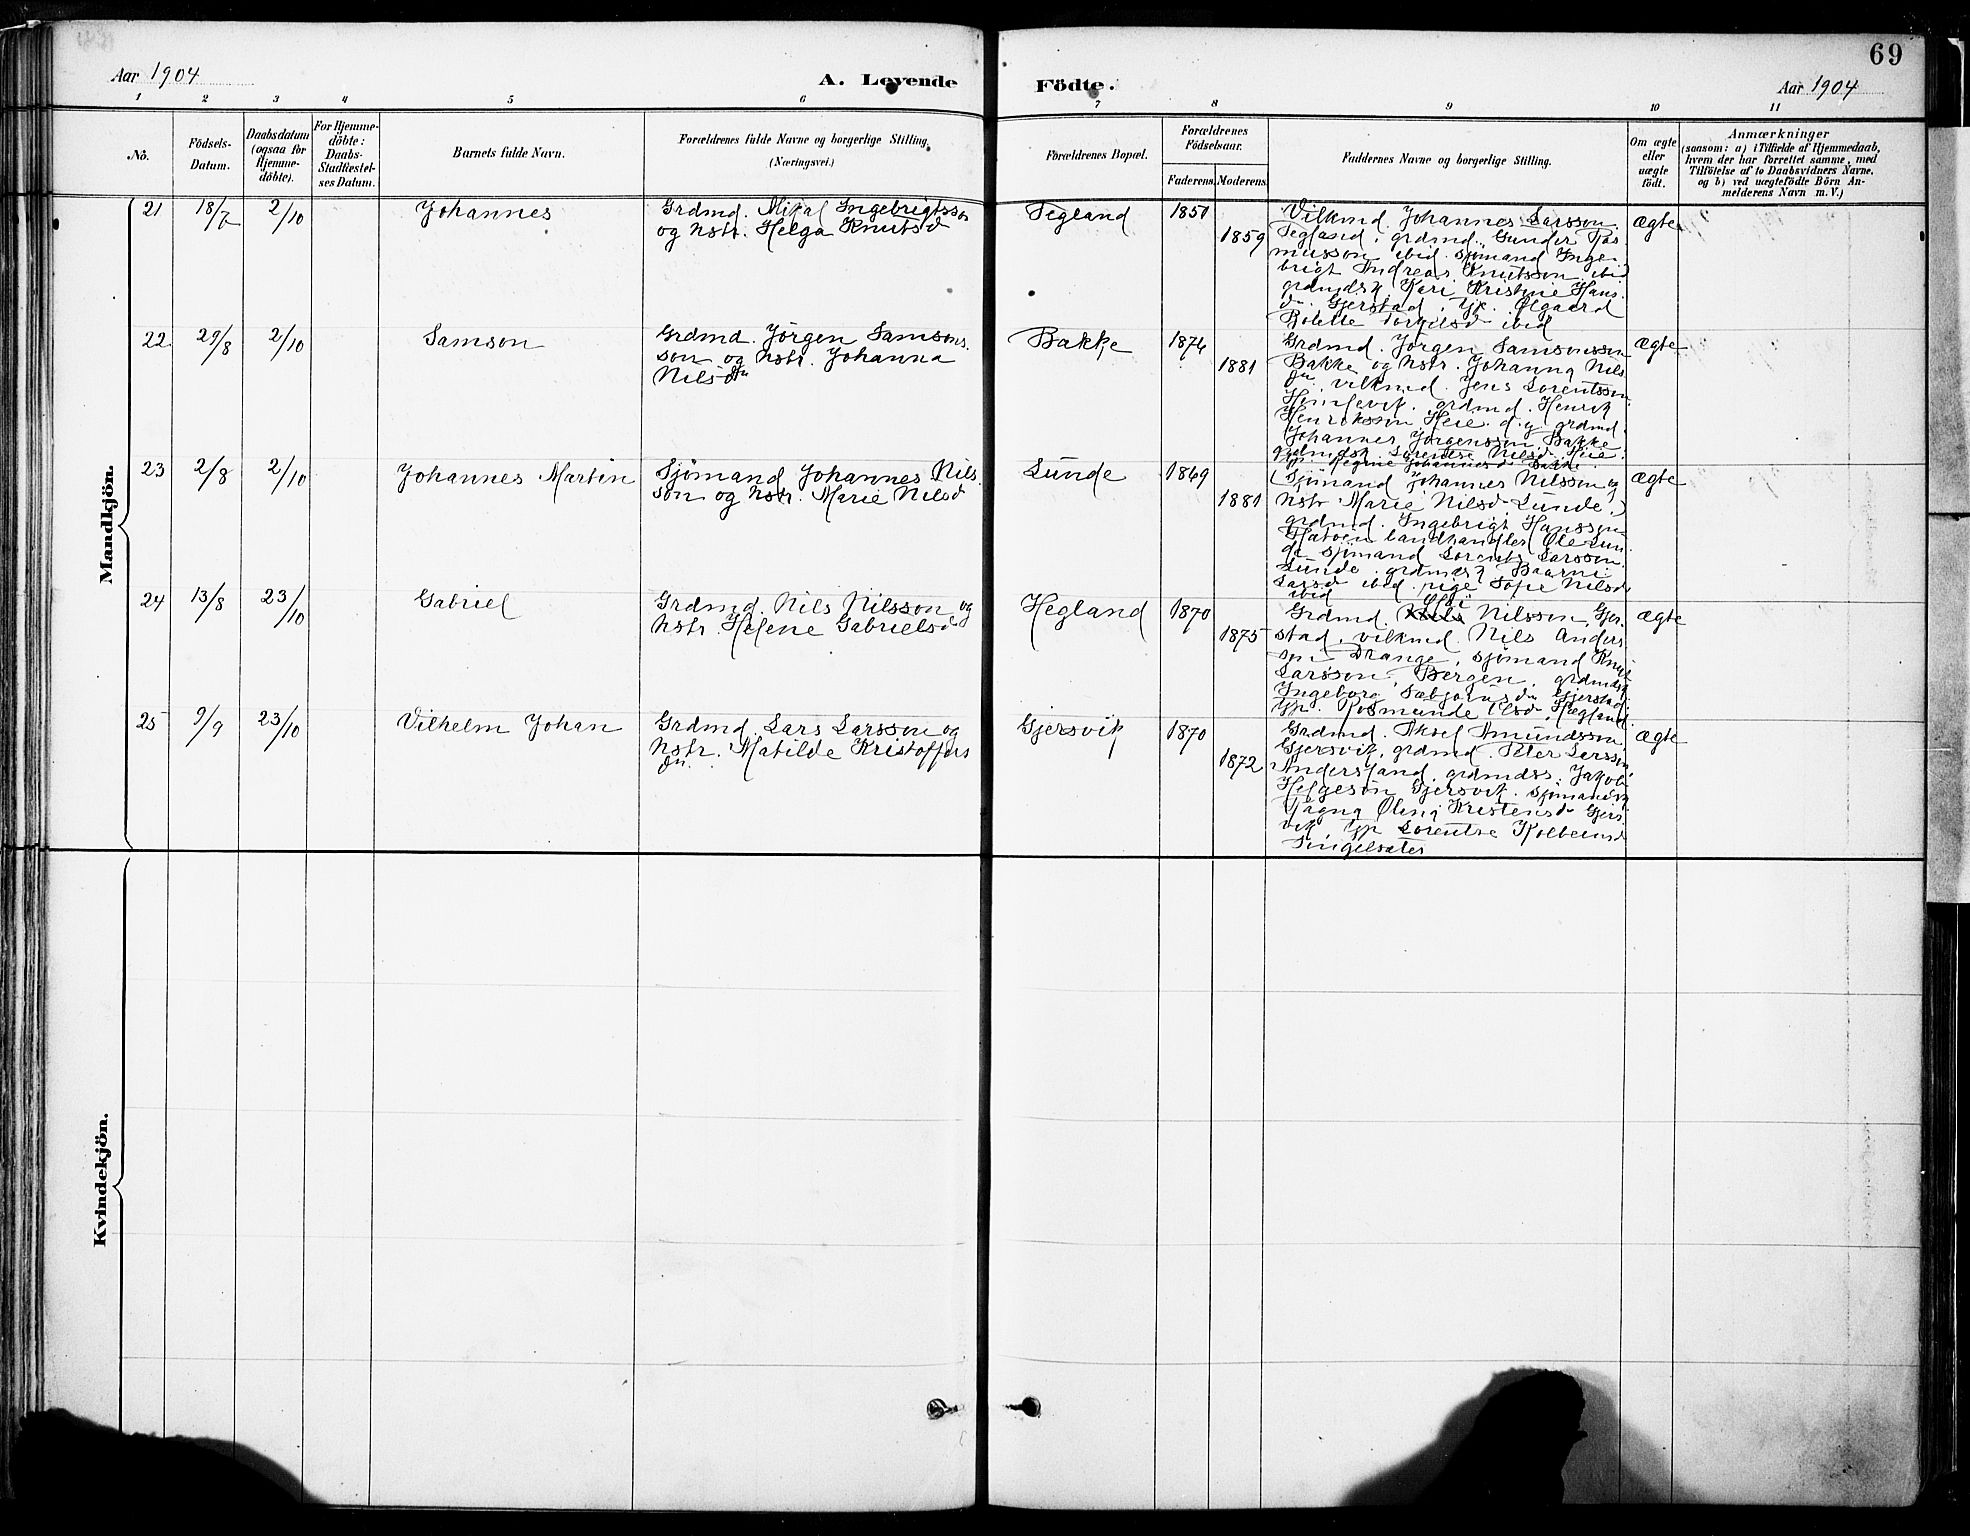 Aar 1904
A. Levende
Födte.
69
Aar 1904
1 2 3 4 5 6 7 8 9 10 11
No.
Födsels-
Datum.
Daabsdatum
(ogsaa for
Hjemme-
döbte).
For Hjemme-
döbte:
Daabs-
Stadfæstel-
ses Datum.
Barnets fulde Navn.
Forældrenes fulde Navne og borgerlige Stilling.
(Næringsvei.)
Forældrenes Bopæl.
Forældrenes
Födselsaar.
Faderens. Moderens.
Faddernes Navne og borgerlige Stilling.
Om ægte
eller
uægte
födt.
Anmærkninger
(saasom: a) i Tilfælde af Hjemmedaab,
hvem der har forrettet samme, med
Tilföielse af to Daabsvidners Navne,
og b) ved uægtefödte Börn An-
melderens Navn m. V.)
Mandkjön.
21 18/7 2/10 Johannes
Grdmd. Mikal Ingebrigtsson
og hstr. Helga Knutsd
Tegland
1859
Vilkmd. Johannes Larsson
Tegland, grdmd. Gunder Ras
musson ibid. sjömand Inge
brigt Andreas Knutsson ibid
grdmdsk Kari Kristine Hans
du. Gjerstad, yp. Olgaard
Bolette Torgilsd ibid
ægte
22 29/8 2/10 Samson
Grdmd. Jörgen Samsons
son og hstr. Johanna
Nilsdu
Bakke
1881
Grdmd. Jörgen Samsonsson
Bakke og hstr. Johanna Nils
du, vilkmd. Jens Lorentsson
grdmd. Henrik
Henriksson Heie d.y. grdmd.
Johannes Jörgensson Bakke
grdmdsk Lorentse Nilsd. Heie
yp. Regine Johannesd Bakke.
ægte
23 2/8 2/10 Johannes Martin
Sjömand Johannes Nils
son og hstr. Marie Nilsd
Lunde
1869
1881
(Sjömand Johannes Nilsson og
hstr Marie Nilsd. Lunde,)
grdmd. Ingebrigt Hansson
Hatöen landhandler Ole Lun
de sjömand Lorents Larsson
Lunde, grdmdsk
Larsd ibid, pige Sofie Nilsd
ibid
ægte
24 13/8 23/10 Gabriel
Grdmd. Nils Nilsson og
hstr. Helene Gabrielsd
Hegland
1870
1875
Grdmd. Nilsson Gjer
stad, vilkmd. Nils Anders
son Drange, sjömand Knut
Larsson, Bergen, grdmdsk
Ingeborg du Gjerstad,
yp. Rosmunde Olsd. Hegland
ægte
25 9/9 23/10 Vilhelm Johan
Grdmd. Lars Larsson og
hstr. Matilde Kristoffers
du.
Gjersvik
1870
1872
Grdmd. Aksel Amundsson
Gjersvik, grdmd. Peter Larsson
Andersland, grdmdss. Jakob
Helgeson Gjersvik. sjömandsk
Magna Olina Kristensd Gjers
vik, yp Lorentse Kolbeinsd
Singelsæter
ægte
Kvindekjön.